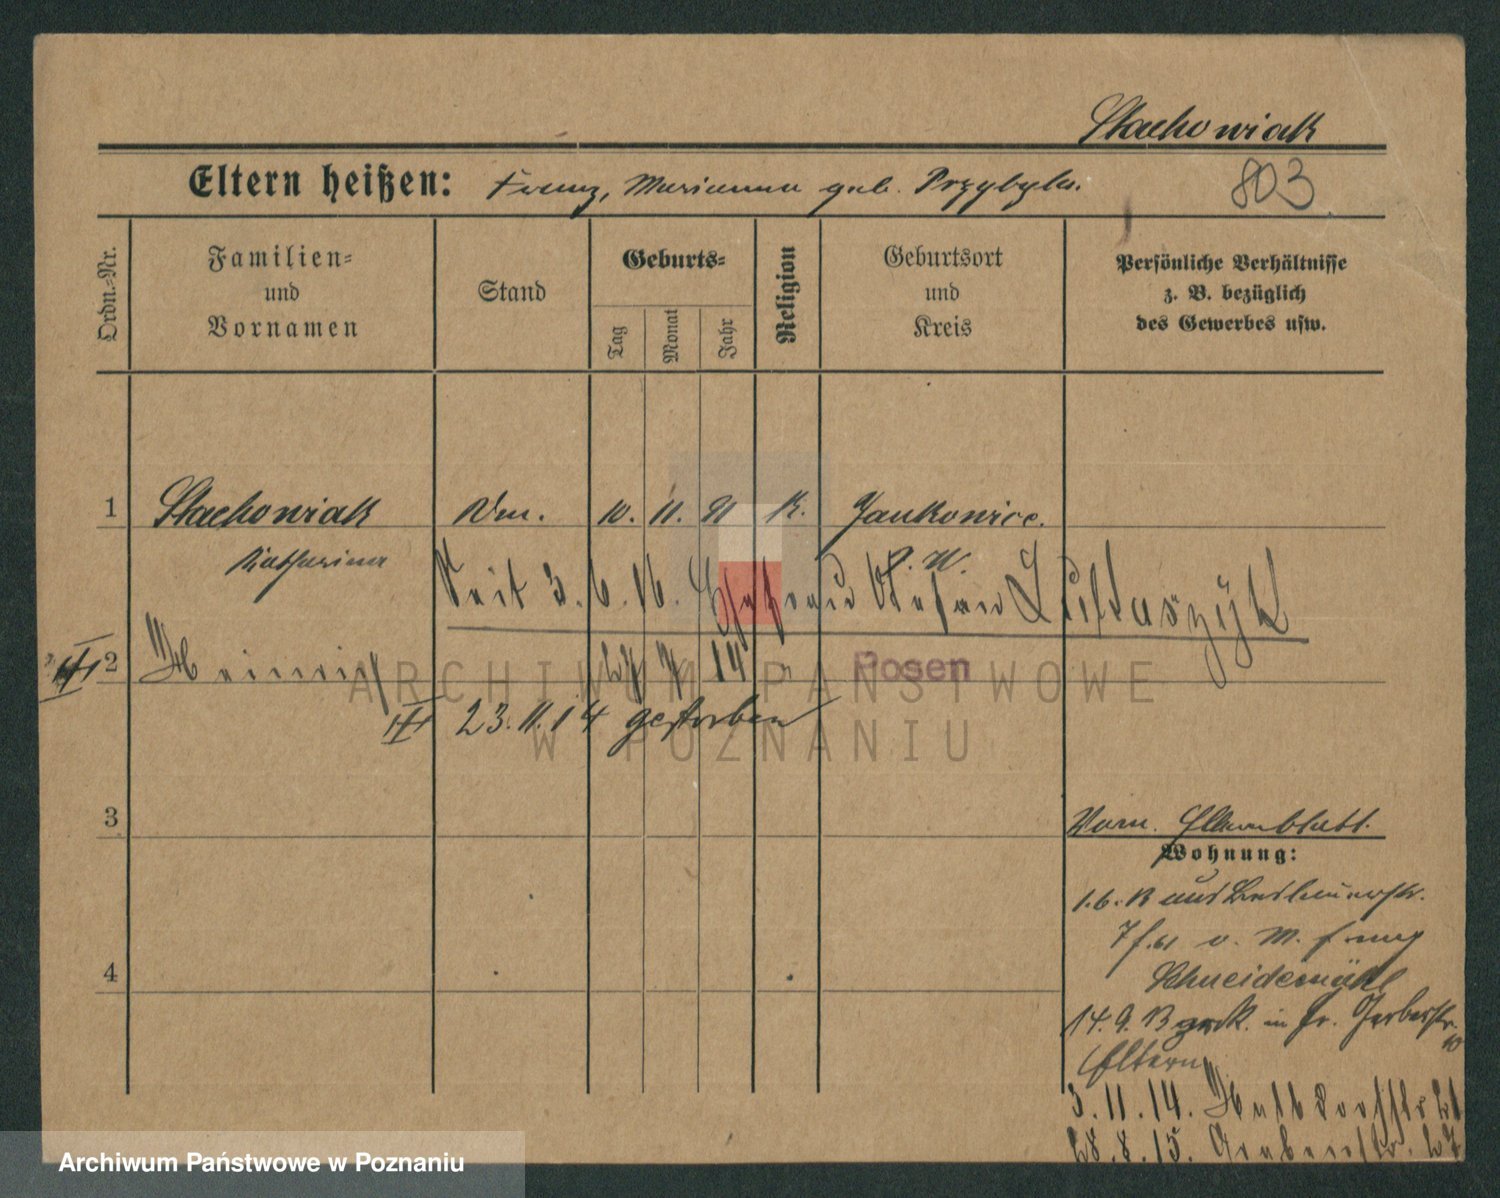 Stachowiak
Eltern heißen: Franz, Marianna geb. Przybyla.
803
Ordn.-Nr.
Familien-
und
Vornamen
Stand
Geburts-
Tag
Monat
Jahr
Religion
Geburtsort
und
Kreis
Persönliche Verhältnisse
z. B. bezüglich
des Gewerbes usw.
1 Stachowiak 10. 11. 91 K. Jankowice.
Katharina P. W.
Seit 3. 6. 16. Ehefrau Stefan
2 Heinrich 27 7 14 Posen
23. 11. 14 gestorben
ARCHIWUM PAŃSTWOWE
W POZNANIU
3
Elternblatt.
Wohnung:
1. 6. 13 aus
7 v. M. Franz
Schneidemühl
14. 9. 13 zurück. in Gr. Gerberstr.
Eltern
3. 11. 14. Halbdorfstr 21
28. 8. 15. Grabenstr. 27
4
Archiwum Państwowe w Poznaniu